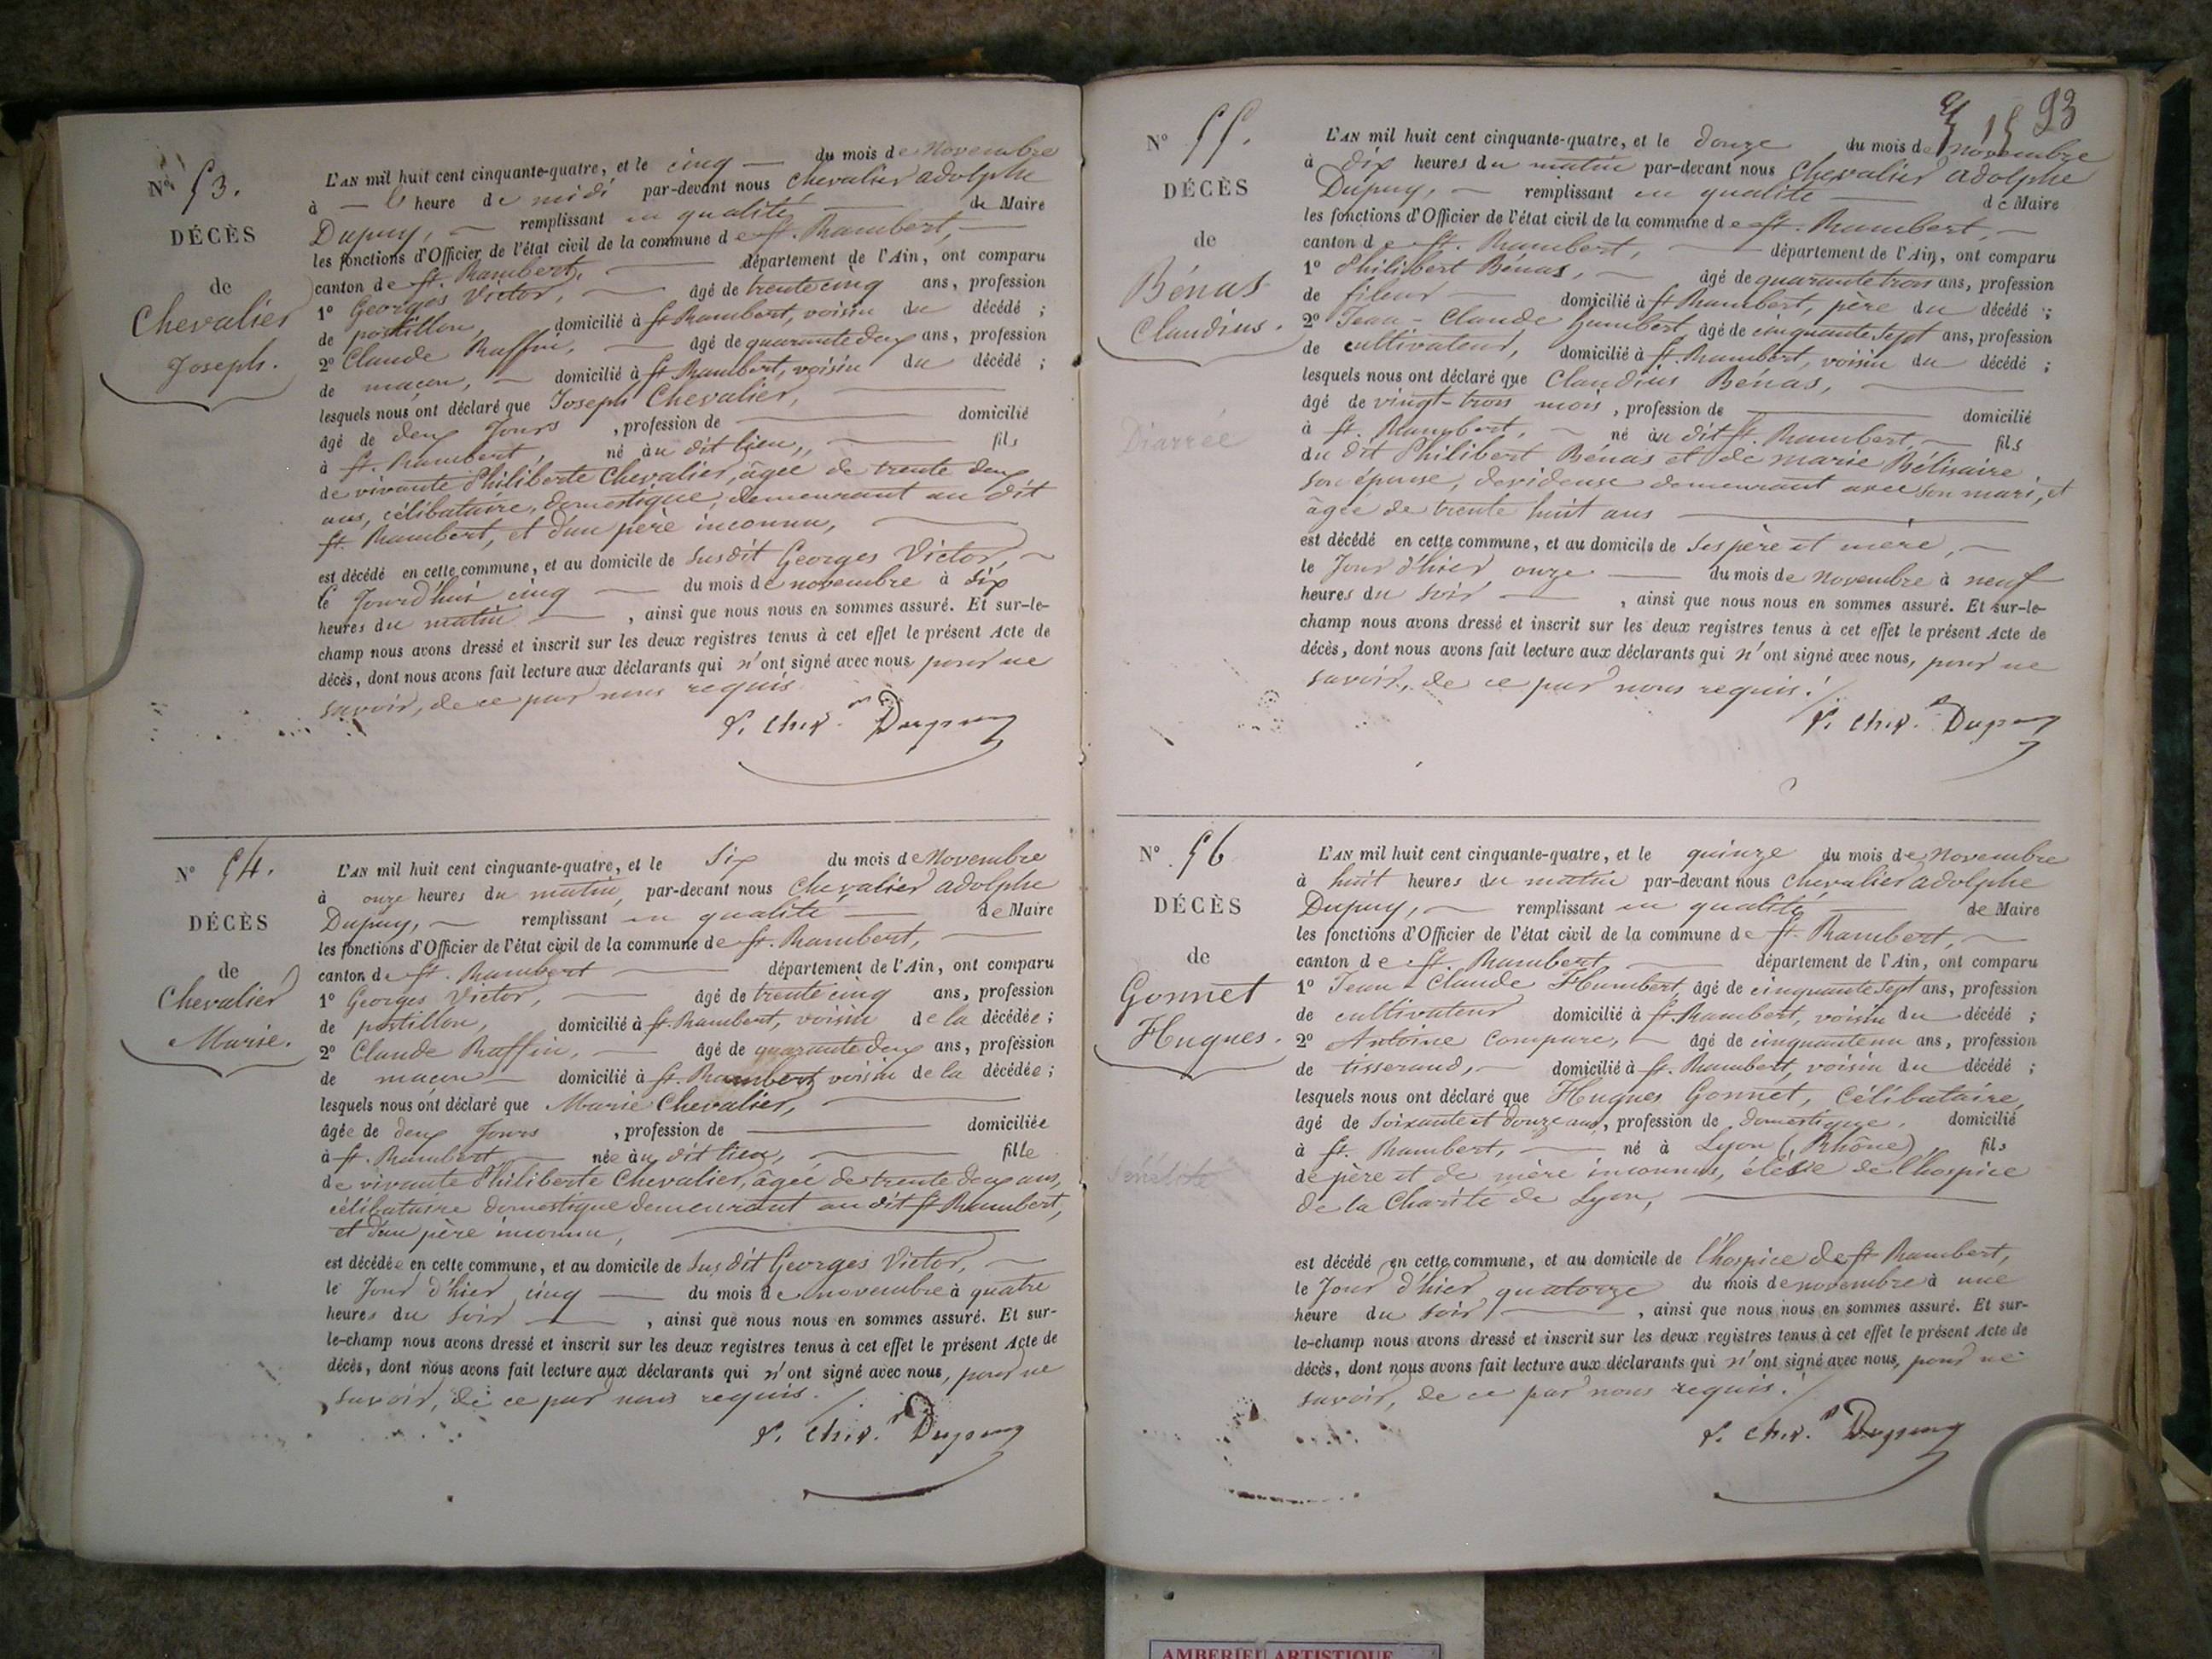 N° 53.
DÉCÈS
de
Chevalier
Joseph.
L'AN mil huit cent cinquante-quatre, et le cinq du mois de Novembre
à heure de midi par-devant nous Chevalier adolphe
Dupuy, remplissant en qualité de Maire
les fonctions d'Officier de l'état civil de la commune de St. Rambert,
canton de St. Rambert, département de l'Ain, ont comparu
1° Georges Victor, âgé de trente cinq ans, profession
de postillon, domicilié à St Rambert, voisin du décédé ;
2° Claude Ruffin, âgé de quarante deux ans, profession
de maçon, domicilié à St Rambert, voisin du décédé ;
lesquels nous ont déclaré que Joseph Chevalier,
âgé de deux Jours , profession de domicilié
à St. Rambert, né àu dit lieu, fils
de vivante Philiberte Chevalier, âgée de trente deux
ans, célibataire, domestique, demeurant au dit
St. Rambert, et d'un père inconnu,
est décédé en cette commune, et au domicile de Susdit Georges Victor,
le Jourd'hui cinq du mois de novembre à Six
heures du matin , ainsi que nous nous en sommes assuré. Et sur-le-
champ nous avons dressé et inscrit sur les deux registres tenus à cet effet le présent Acte de
décès, dont nous avons fait lecture aux déclarants qui n'ont signé avec nous, pour ne
savoir, de ce par nous requis.
Dupuy
N° 54.
DÉCÈS
de
Chevalier
Marie.
L'AN mil huit cent cinquante-quatre, et le Six du mois de Novembre
à onze heures du matin, par-devant nous Chevalier adolphe
Dupuy, remplissant en qualité de Maire
les fonctions d'Officier de l'état civil de la commune de St. Rambert,
canton de St. Rambert département de l'Ain, ont comparu
1° Georges Victor, âgé de trente cinq ans, profession
de postillon, domicilié à St. Rambert, voisin de la décédée ;
2° Claude Ruffin, âgé de quarante deux ans, profession
de maçon domicilié à St. Rambert, voisin de la décédée ;
lesquels nous ont déclaré que Marie Chevalier,
âgée de deux Jours , profession de domiciliée
à St. Rambert née àu dit lieu, fille
de vivante Philiberte Chevalier, âgée de trente deux ans,
célibataire domestique demeurant au dit St Rambert,
et d'un père inconnu,
est décédée en cette commune, et au domicile de Susdit Georges Victor,
le Jour d'hier cinq du mois de novembre à quatre
heures du Soir , ainsi que nous nous en sommes assuré. Et sur-
le-champ nous avons dressé et inscrit sur les deux registres tenus à cet effet le présent Acte de
décès, dont nous avons fait lecture aux déclarants qui n'ont signé avec nous, pour ne
savoir, de ce par nous requis.
Dupuy
93
N° 55.
DÉCÈS
de
Bénas
Claudius.
Diarrée
L'AN mil huit cent cinquante-quatre, et le douze du mois de novembre
à dix heures du matin par-devant nous Chevalier adolphe
Dupuy, remplissant en qualité de Maire
les fonctions d'Officier de l'état civil de la commune de St. Rambert,
canton de St. Rambert, département de l'Ain, ont comparu
1° Philibert Bénas, âgé de quarante trois ans, profession
de fileur domicilié à St Rambert, père du décédé ;
2° Jean-Claude Humbert, âgé de cinquante Sept ans, profession
de cultivateur, domicilié à St. Rambert, voisin du décédé ;
lesquels nous ont déclaré que Claudius Bénas,
âgé de vingt-trois mois , profession de domicilié
à St. Rambert, né àu dit St. Rambert fils
du dit Philibert Bénas et de marie Bélisaire
son épouse, devideuse demeurant avec son mari, et
âgée de trente huit ans
est décédé en cette commune, et au domicile de Ses père et mère,
le Jour d'hier onze du mois de Novembre à neuf
heures du Soir , ainsi que nous nous en sommes assuré. Et sur-le-
champ nous avons dressé et inscrit sur les deux registres tenus à cet effet le présent Acte de
décès, dont nous avons fait lecture aux déclarants qui n'ont signé avec nous, pour ne
savoir, de ce par nous requis.
Dupuy
N° 56
DÉCÈS
de
Gonnet
Hugues.
L'AN mil huit cent cinquante-quatre, et le quinze du mois de Novembre
à huit heures du matin par-devant nous Chevalier adolphe
Dupuy, remplissant en qualité de Maire
les fonctions d'Officier de l'état civil de la commune de St. Rambert,
canton de St. Rambert département de l'Ain, ont comparu
1° Jean-Claude Humbert, âgé de cinquante Sept ans, profession
de cultivateur domicilié à St. Rambert, voisin du décédé ;
2° Antoine Compare, âgé de cinquante un ans, profession
de tisserand, domicilié à St. Rambert, voisin du décédé ;
lesquels nous ont déclaré que Hugues Gonnet, Célibataire,
âgé de Soixante et douze ans, profession de domestique, domicilié
à St. Rambert, né à Lyon (Rhône) fils
de père et de mère inconnus, élève de l'hospice
de la Charité de Lyon,
est décédé en cette commune, et au domicile de l'hospice de St Rambert,
le Jour d'hier quatorze du mois de novembre à une
heure du Soir, , ainsi que nous nous en sommes assuré. Et sur-
le-champ nous avons dressé et inscrit sur les deux registres tenus à cet effet le présent Acte de
décès, dont nous avons fait lecture aux déclarants qui n'ont signé avec nous, pour ne
savoir, de ce par nous requis.
Dupuy
AMBERIEU ARTISTIQUE